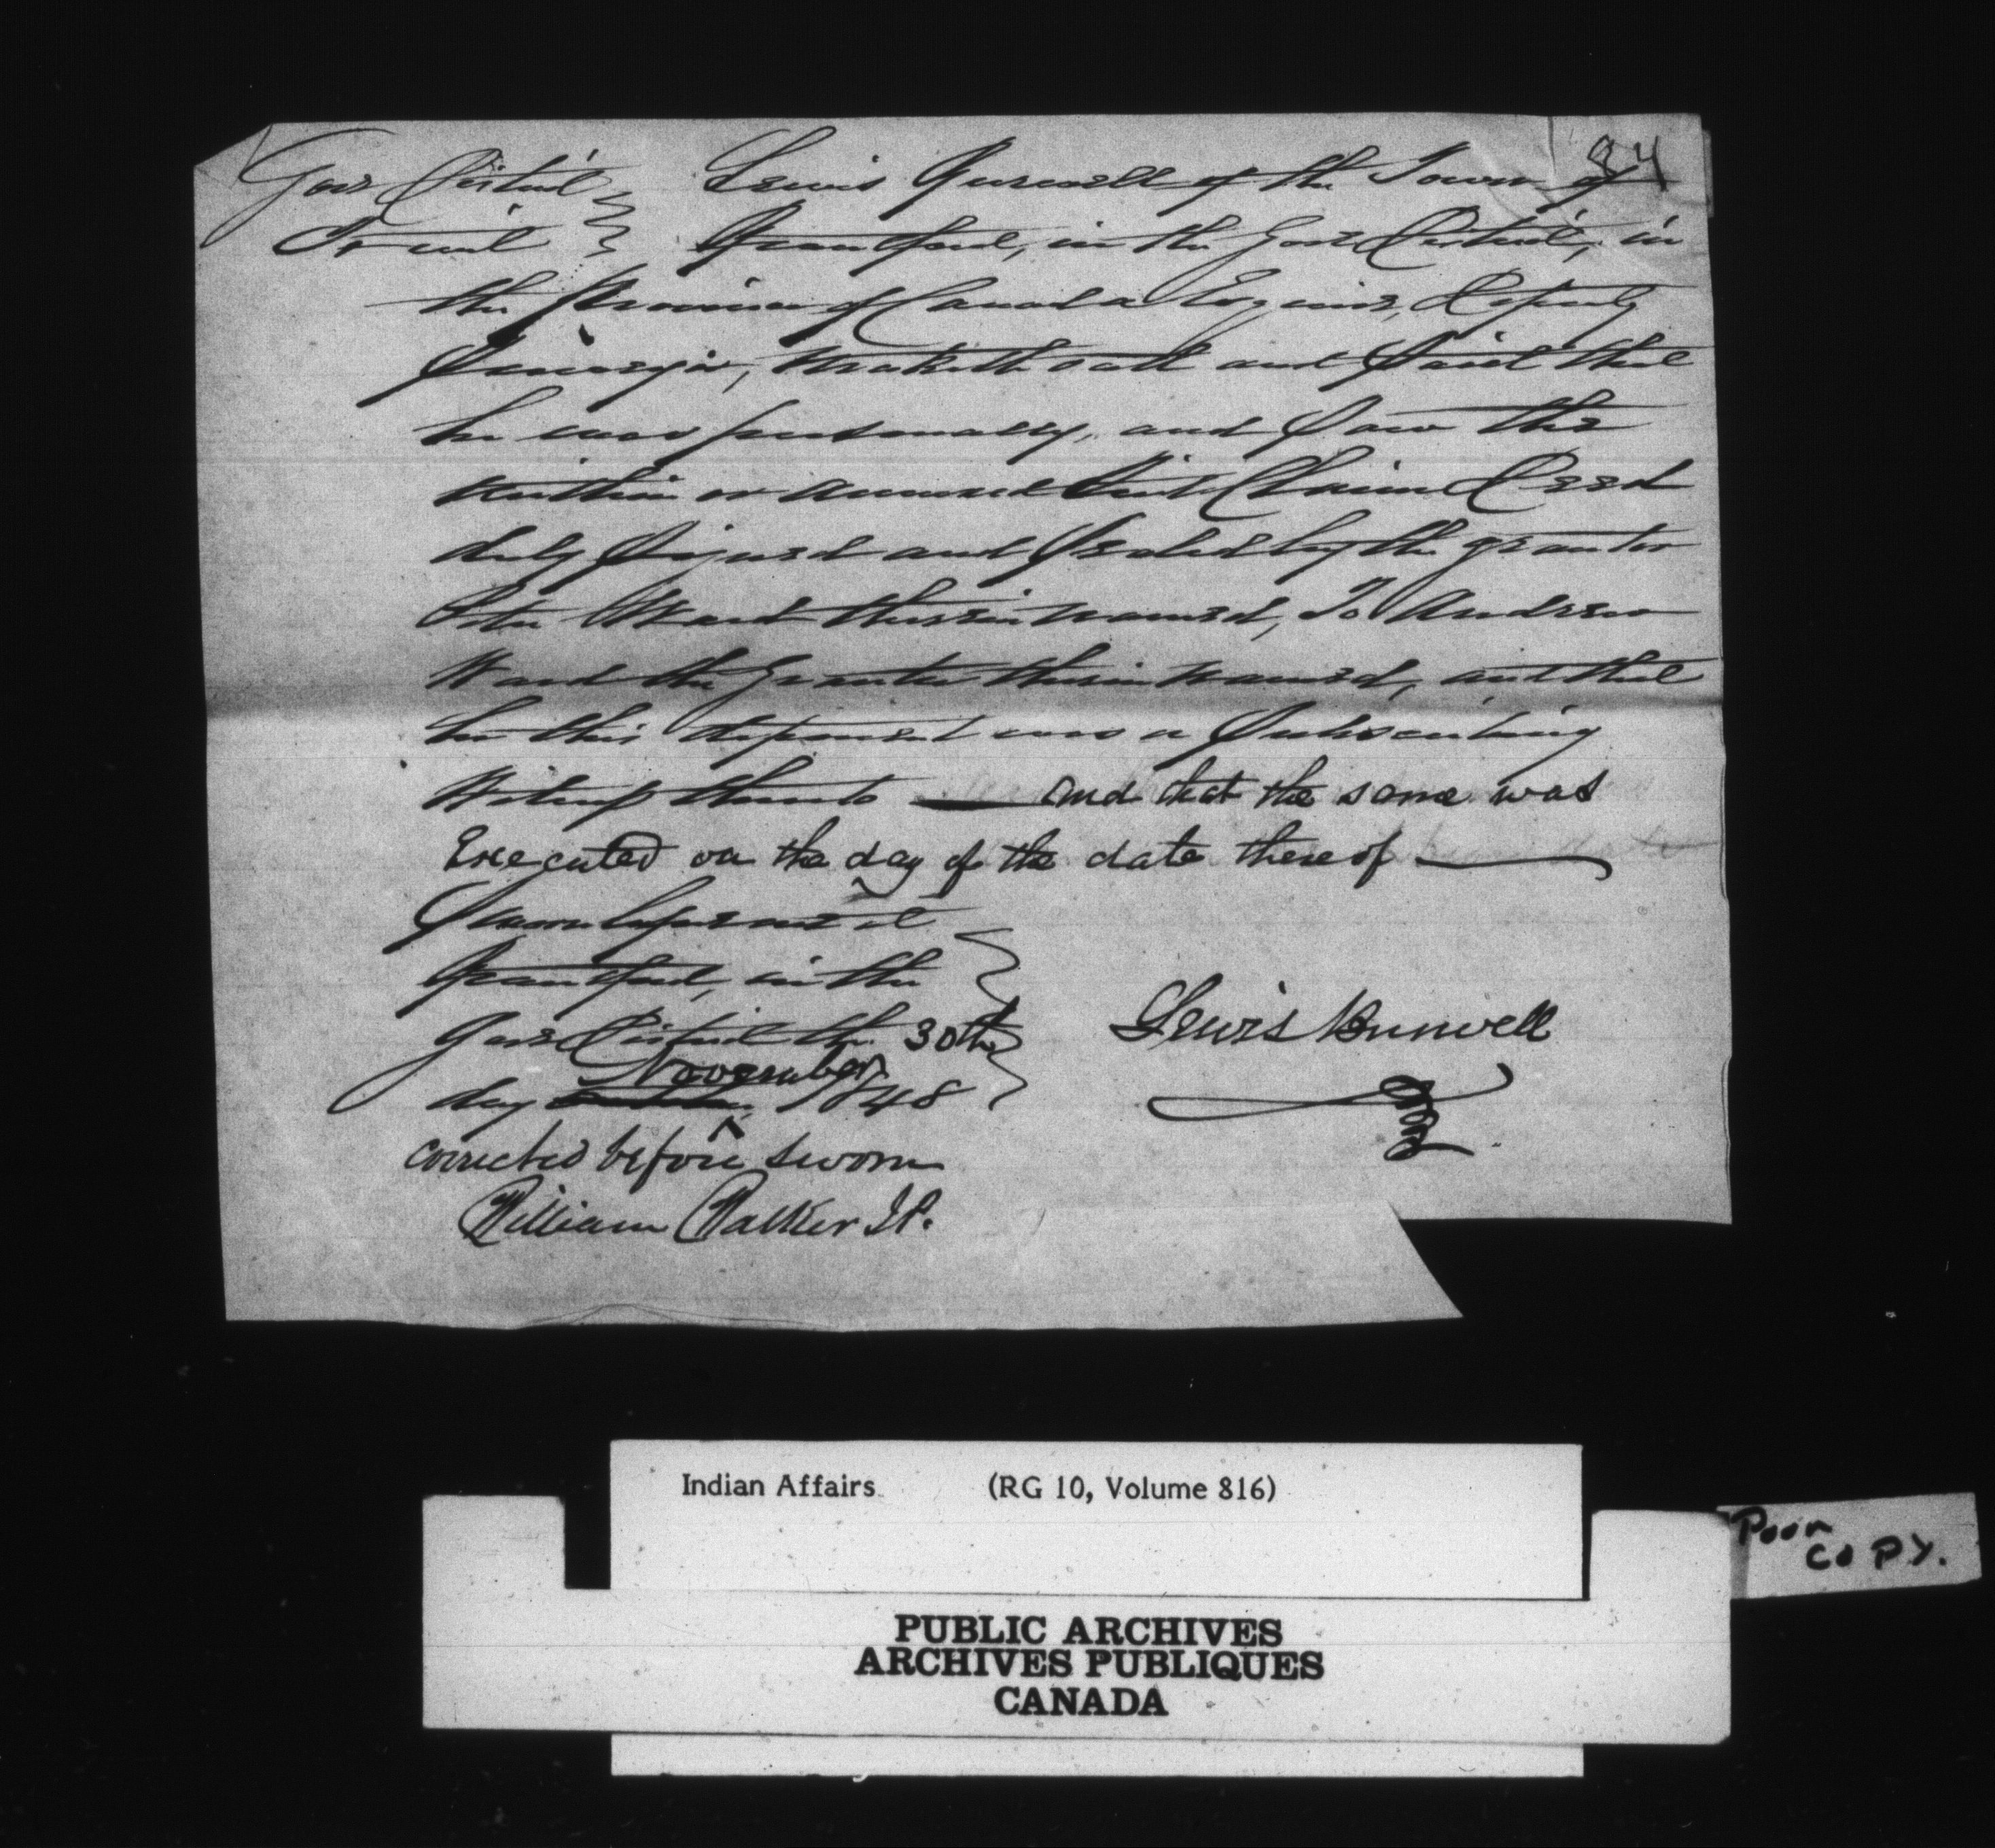 84
Gore District Lewis Burwell of the Town of
To wit Brantford, in the Gore District, in
the Province of Canada Esquire, Deputy
Surveyor, maketh oath and Saith that
he was personally, and Saw the
within or annexed Quit Claim Deed
duly Signed and Sealed by the grantor
Peter Ward therein named, To Andrew
Ward the Grantee therein named, and that
he this deponent was a Subscribing
Witness thereto — and that the same was
Executed on the day of the date thereof —
Sworn before me at
Brantford, in the
Gore District the 30th
November
day 1848
Lewis Burwell
corrected before sworn
William Walker J.P.
Indian Affairs (RG 10, Volume 816)
Poor
COPY.
PUBLIC ARCHIVES
ARCHIVES PUBLIQUES
CANADA